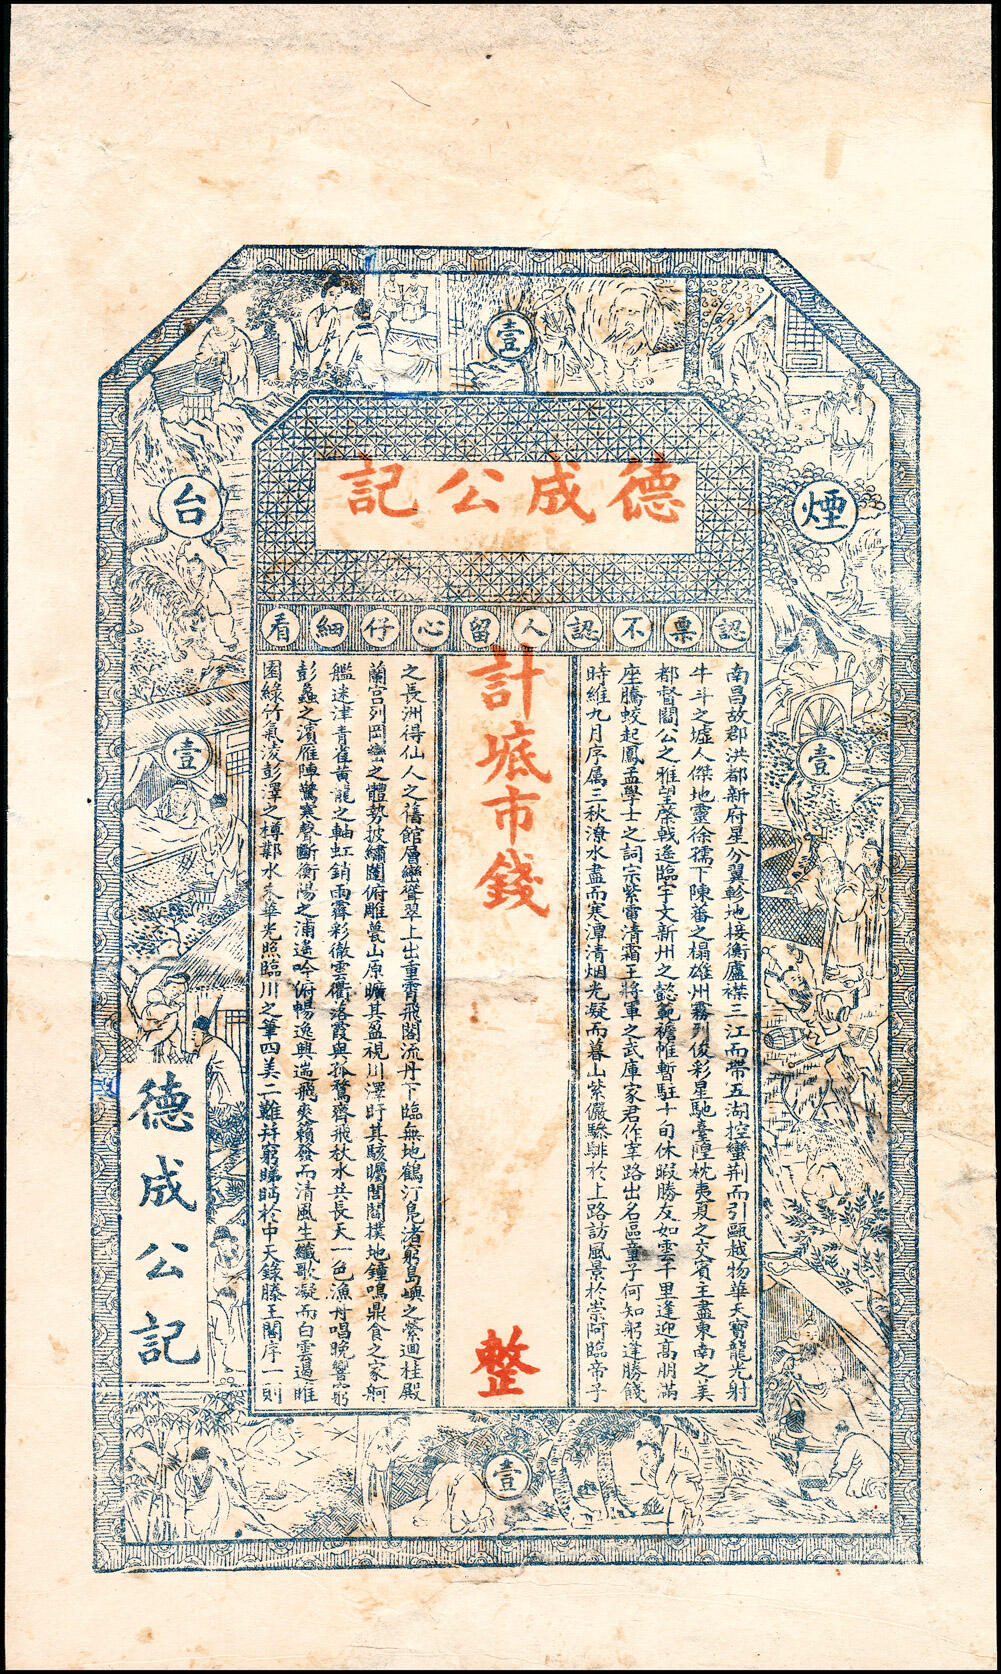 壹
煙台
德成公記
認票不認人留心仔細看
南昌故郡洪都新府星分翼軫地接衡廬襟三江而帶五湖控蠻荊而引甌越物華天寶龍光射
牛斗之墟人傑地靈徐孺下陳蕃之榻雄州霧列俊彩星馳臺隍枕夷夏之交賓主盡東南之美
都督閻公之雅望棨戟遙臨宇文新州之懿範襜帷暫駐十旬休暇勝友如雲千里逢迎高朋滿
座騰蛟起鳳孟學士之詞宗紫電清霜王將軍之武庫家君作宰路出名區童子何知躬逢勝餞
時維九月序属三秋潦水盡而寒潭清烟光凝而暮山紫儼驂騑於上路訪風景於崇阿臨帝子
計坻市錢
整
之長洲得仙人之舊館層巒聳翠上出重霄飛閣流丹下臨無地鶴汀鳧渚窮島嶼之縈迴桂殿
蘭宮列岡巒之體勢披繡闥俯雕甍山原曠其盈視川澤盱其駭矚閭閻撲地鐘鳴鼎食之家舸
艦迷津青雀黄龍之軸虹銷雨霽彩徹雲衢落霞與孤鶩齊飛秋水共長天一色漁舟唱晚響窮
彭蠡之濱雁陣驚寒聲斷衡陽之浦遙吟俯暢逸興遄飛爽籟發而清風生纖歌凝而白雲遏睢
園綠竹氣凌彭澤之樽鄴水朱華光照臨川之筆四美二難并窮睇眄於中天錄滕王閣序一則
壹
壹
德成公記
壹